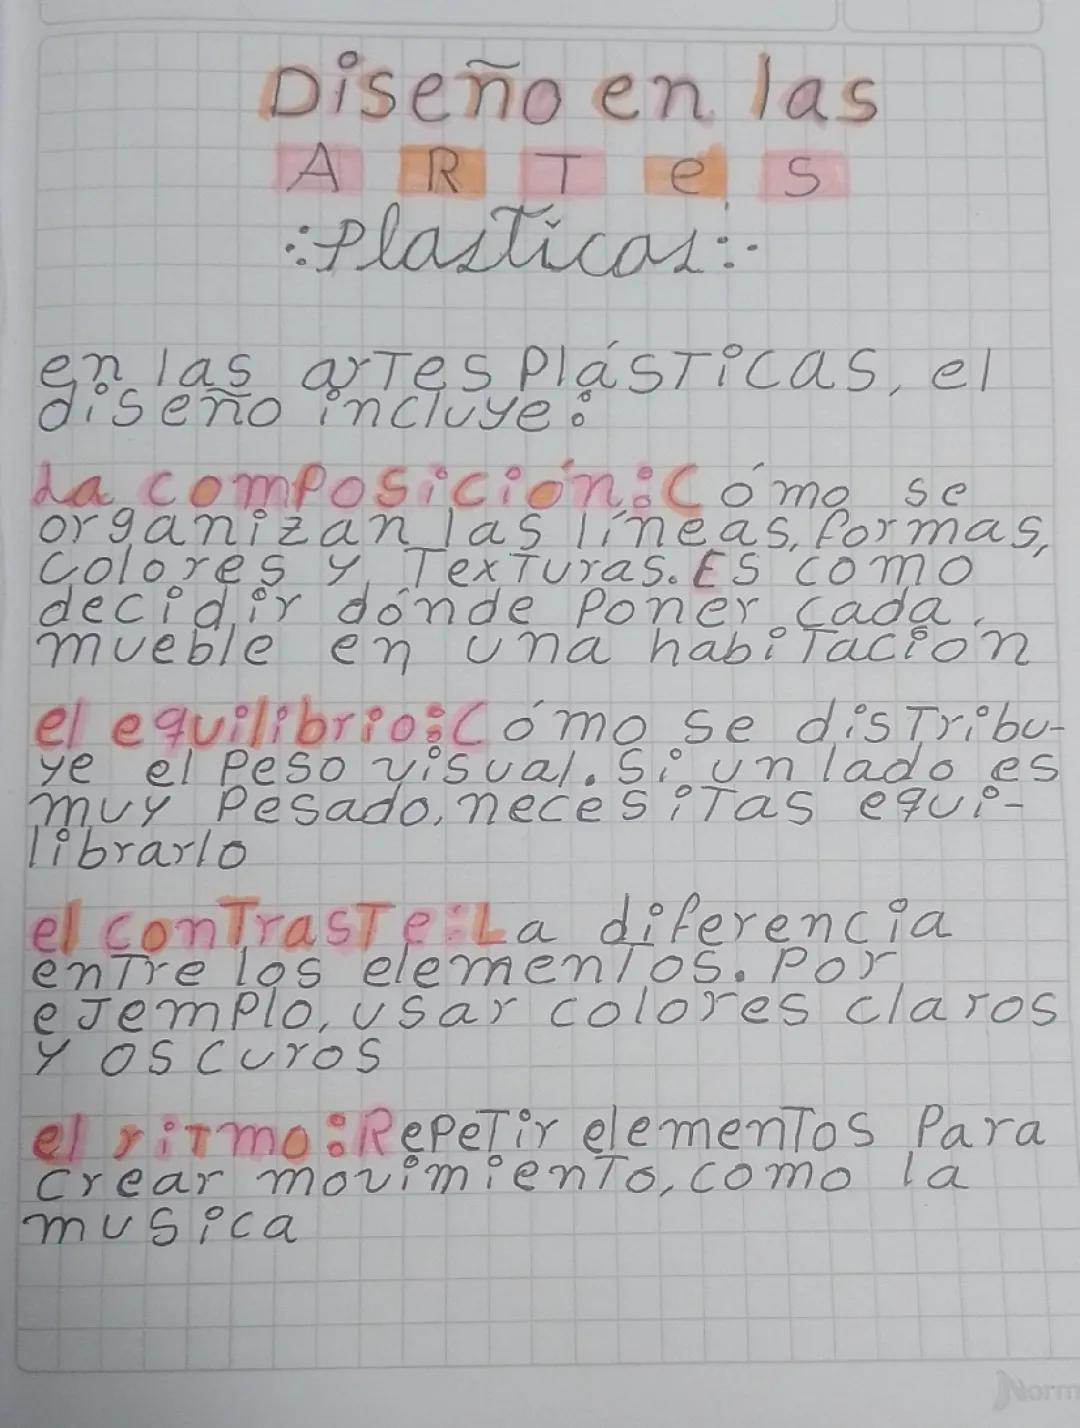 Diseño en las
ARTes
Plasticas
en las arTes PlásTicas, el
diseño incluye:
La composición: Cómo se
organizan las líneas, formas,
colores y TexTuras. ES como
decidir dónde poner cada
mueble en una habiTación
el equilibrio: Cómo se disTribu-
ye el Peso visual. Si un lado es
muy Pesado, necesiTas equi-
librarlo
el conTrasTe: La diferencia
enTre los elemenTos. Por
eJemPlo, usar colores claros
y oscuros
el riTmo: RePeTir elemenTos Para
crear movimienTo, como la
musica
Norm